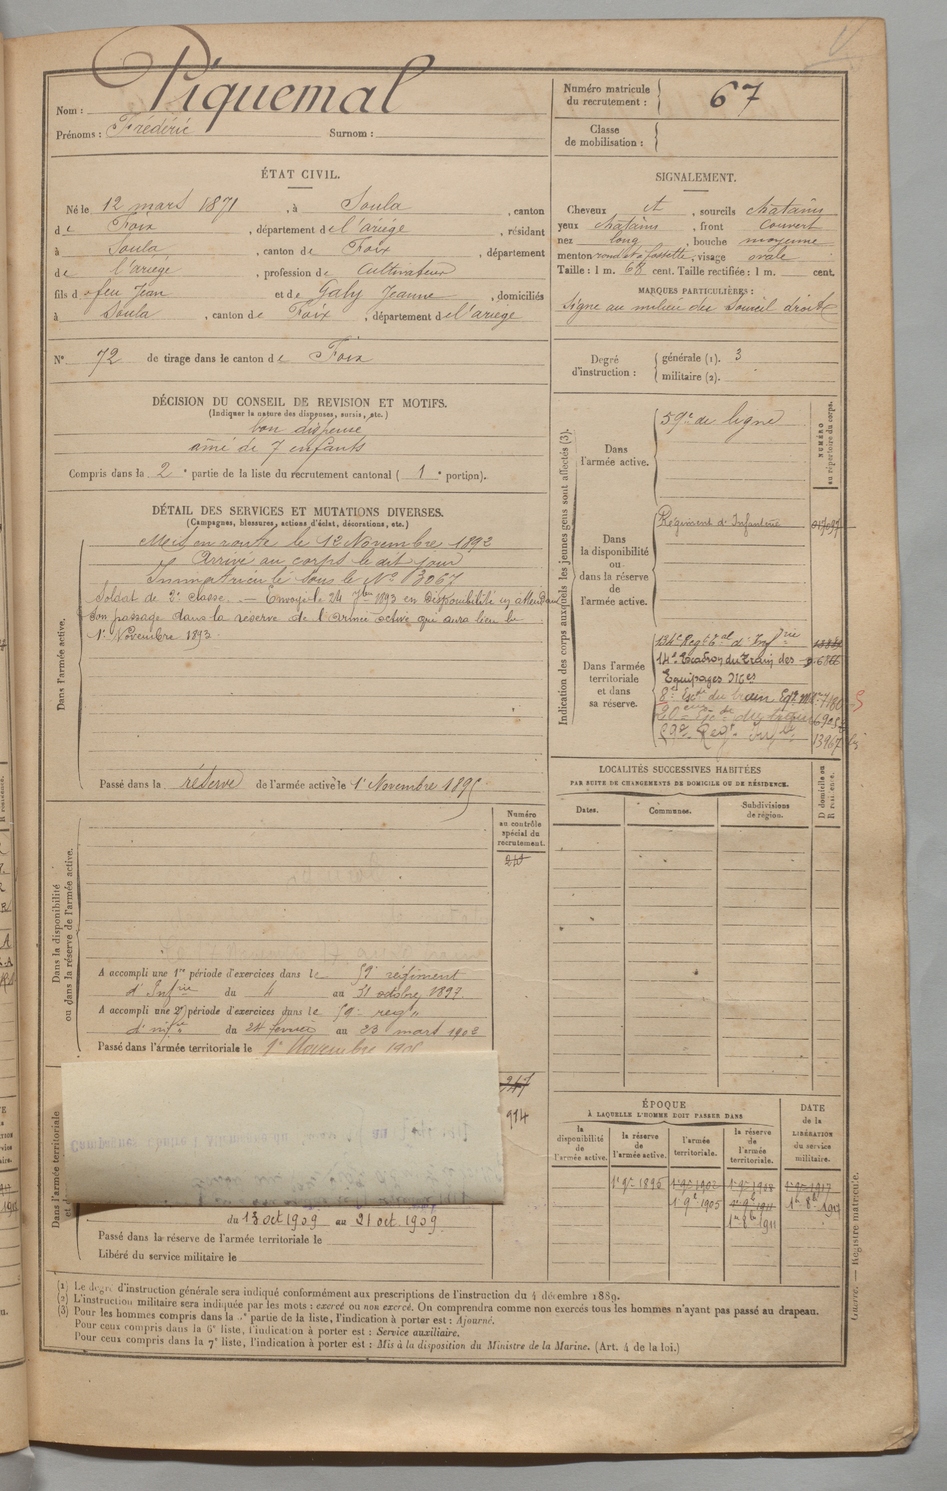 Piquemal
Nom :
Prénoms : Frédéric Surnom :
Numéro matricule du recrutement : 67
Classe de mobilisation :
ÉTAT CIVIL.
Né le 12 mars 1871, à Soula, canton
de Foix, département de l'ariège, résidant
à Soula, canton de Foix, département
de l'ariège, profession de Cultivateur
fils de feu Jean et de Gaby Jeanne, domiciliés
à Soula, canton de Foix, département de l'ariège
N° 72 de tirage dans le canton de Foix
SIGNALEMENT.
Cheveux et, sourcils chatains
yeux chatains, front couvert
nez long, bouche moyenne
menton rond et à fossette, visage ovale
Taille : 1 m. 68 cent. Taille rectifiée : 1 m. cent.
MARQUES PARTICULIÈRES :
Signe au milieu du sourcil droit
Degré d'instruction : générale (1). 3
militaire (2).
DÉCISION DU CONSEIL DE REVISION ET MOTIFS.
(Indiquer la nature des dispenses, sursis, etc.)
bon dispensé
aîné de 7 enfants
Compris dans la 2e partie de la liste du recrutement cantonal (1e portion).
DÉTAIL DES SERVICES ET MUTATIONS DIVERSES.
(Campagnes, blessures, actions d'éclat, décorations, etc.)
Dans l'armée active.
Mis en route le 12 Novembre 1892
Arrivé au corps le dit jour
Immatriculé sous le N° 3067
Soldat de 2e classe. — Envoyé le 24 7bre 1893 en Disponibilité en attendant
son passage dans la réserve de l'armée active qui aura lieu le
1er Novembre 1893.
Passé dans la réserve de l'armée active le 1er Novembre 1895
Numéro au contrôle spécial du recrutement.
Dans la disponibilité ou dans la réserve de l'armée active.
A accompli une 1re période d'exercices dans le 59e régiment
d'Infrie du 4 au 31 octobre 1897.
A accompli une 2e période d'exercices dans le 59e reg
d'infie du 24 février au 23 mars 1902
Passé dans l'armée territoriale le 1er Novembre
Dans l'armée territoriale
914
du 13 oct 1909 au 21 oct. 1909
Passé dans la réserve de l'armée territoriale le
Libéré du service militaire le
Indication des corps auxquels les jeunes gens sont affectés (3).
NUMÉRO au répertoire du corps.
Dans l'armée active.
59e de ligne
Dans la disponibilité ou dans la réserve de l'armée active.
Régiment d'Infanterie
Dans l'armée territoriale et dans sa réserve.
134e Regt tal d'Infrie
14e Escadron du Train des
Equipages Mres
13967
LOCALITÉS SUCCESSIVES HABITÉES
PAR SUITE DE CHANGEMENTS DE DOMICILE OU DE RÉSIDENCE.
Dates. Communes. Subdivisions de région. D domicile ou R résidence.
ÉPOQUE
À LAQUELLE L'HOMME DOIT PASSER DANS
DATE de la LIBÉRATION du service militaire.
la disponibilité de l'armée active. la réserve de l'armée active. l'armée territoriale. la réserve de l'armée territoriale.
1er 9bre 1895
1er 9bre 1905
1911
(1) Le degré d'instruction générale sera indiqué conformément aux prescriptions de l'instruction du 4 décembre 1889.
(2) L'instruction militaire sera indiquée par les mots : exercé ou non exercé. On comprendra comme non exercés tous les hommes n'ayant pas passé au drapeau.
(3) Pour les hommes compris dans la 5e partie de la liste, l'indication à porter est : Ajourné.
Pour ceux compris dans la 6e liste, l'indication à porter est : Service auxiliaire.
Pour ceux compris dans la 7e liste, l'indication à porter est : Mis à la disposition du Ministre de la Marine. (Art. 4 de la loi.)
Guerre. — Registre matricule.